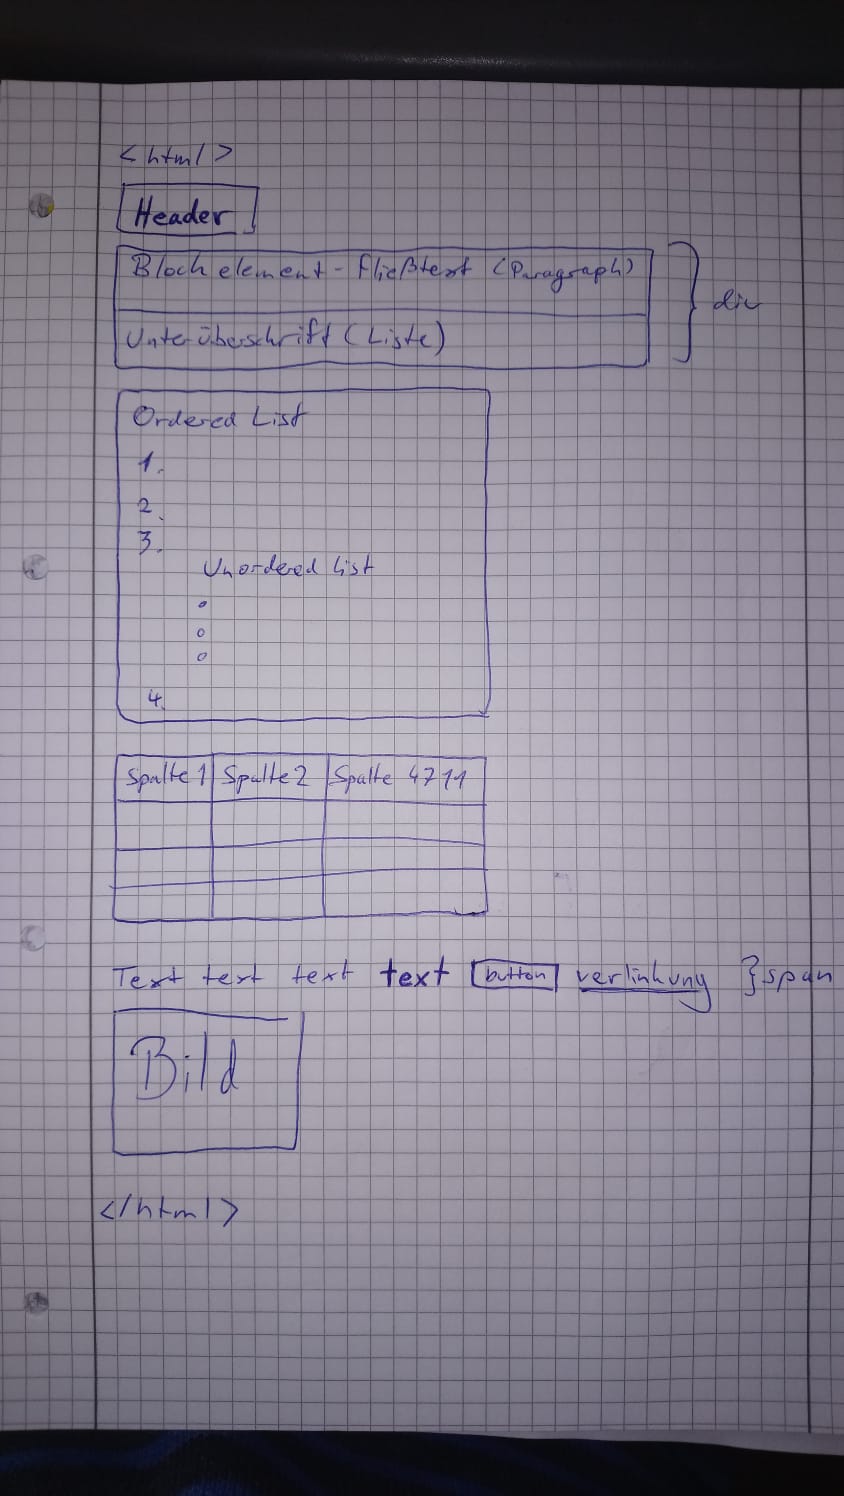 <html>
Header
Blockelement - Fließtext (Paragraph)
div
Unterüberschrift (Liste)
Ordered List
1.
2.
3.
Unordered list
4.
Spalte 1 Spalte 2 Spalte 4711
Text text text text button verlinkung } span
Bild
</html>